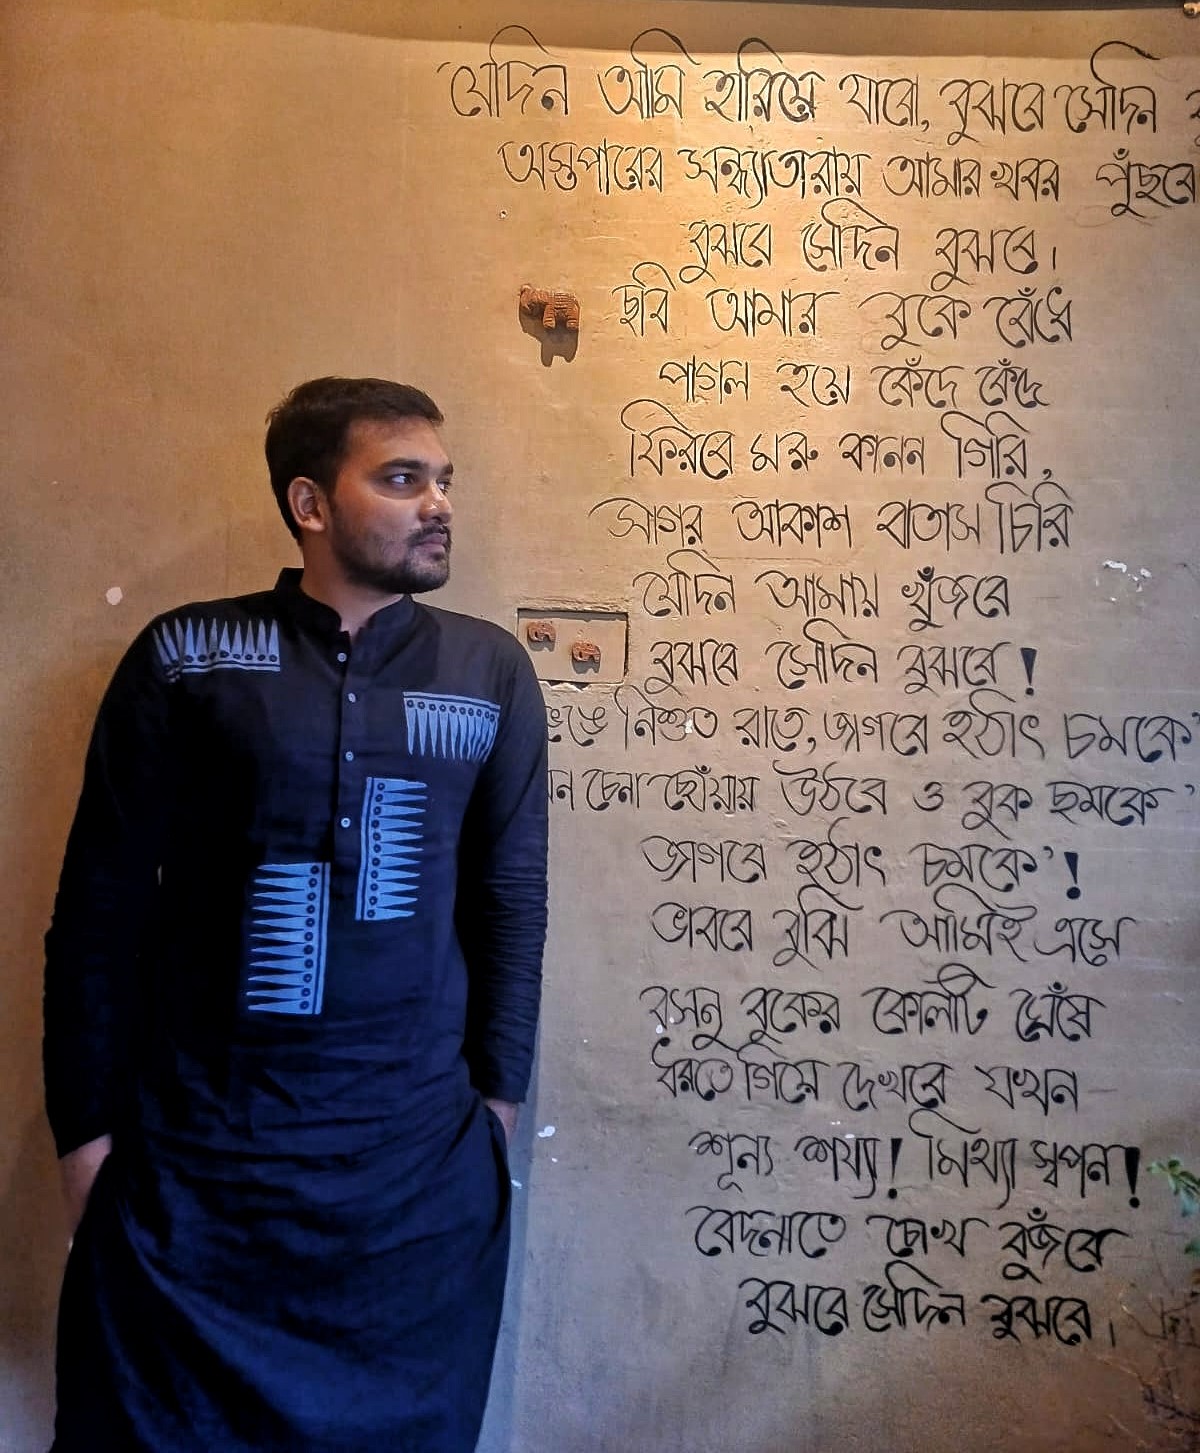 যেদিন আমি হারিয়ে যাবো, বুঝবে সেদিন
অস্তপারের সন্ধ্যাতারায় আমার খবর পুঁছবে
বুঝবে সেদিন বুঝবে।
ছবি আমার বুকে বেঁধে
পাগল হয়ে কেঁদে কেঁদে
ফিরবে মরু কানন গিরি,
সাগর আকাশ বাতাস চিরি
যেদিন আমায় খুঁজবে
বুঝবে সেদিন বুঝবে!
নিশুত রাতে, জাগবে হঠাৎ চমকে'
চেনা ছোঁয়ায় উঠবে ও বুক ছমকে'
জাগবে হঠাৎ চমকে'!
ভাববে বুঝি আমিই এসে
বসনু বুকের কোলটি ঘেঁষে
ধরতে গিয়ে দেখবে যখন
শূন্য শয্যা! মিথ্যা স্বপন!
বেদনাতে চোখ বুঁজবে
বুঝবে সেদিন বুঝবে।